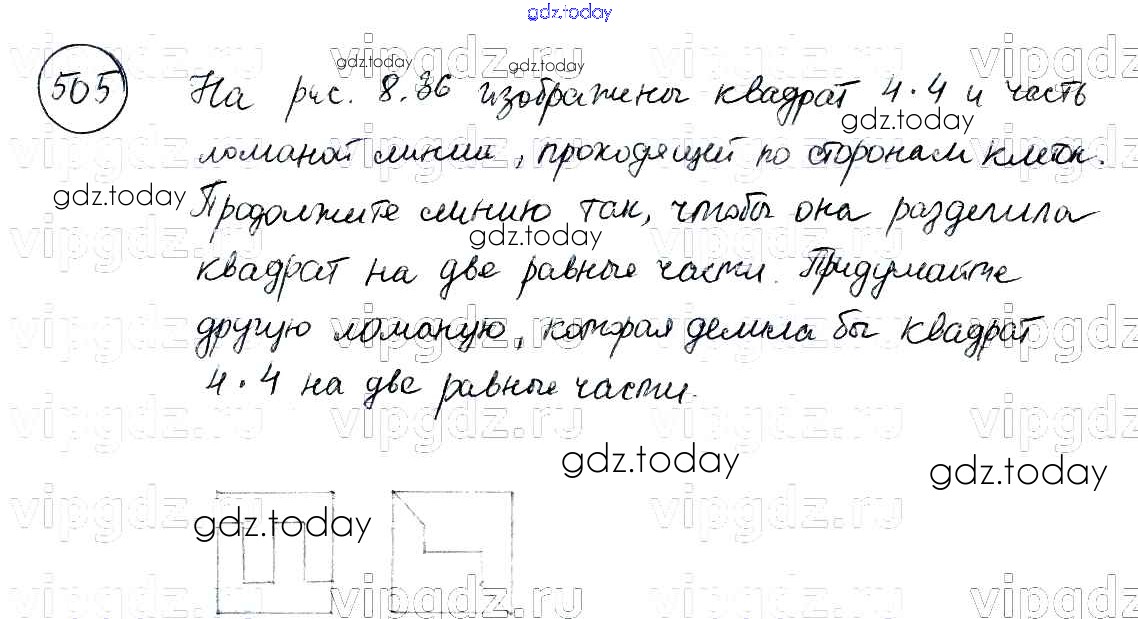 gdz.today
gdz.today gdz.today
505 На рис. 8.36 изображены квадрат 4·4 и часть
gdz.today
ломаной линии, проходящей по сторонам клеток.
gdz.today
Продолжите линию так, чтобы она разделила
gdz.today
квадрат на две равные части. Придумайте
другую ломаную, которая делила бы квадрат
4·4 на две равные части.
gdz.today
gdz.today
gdz.today
vipgdz.ru